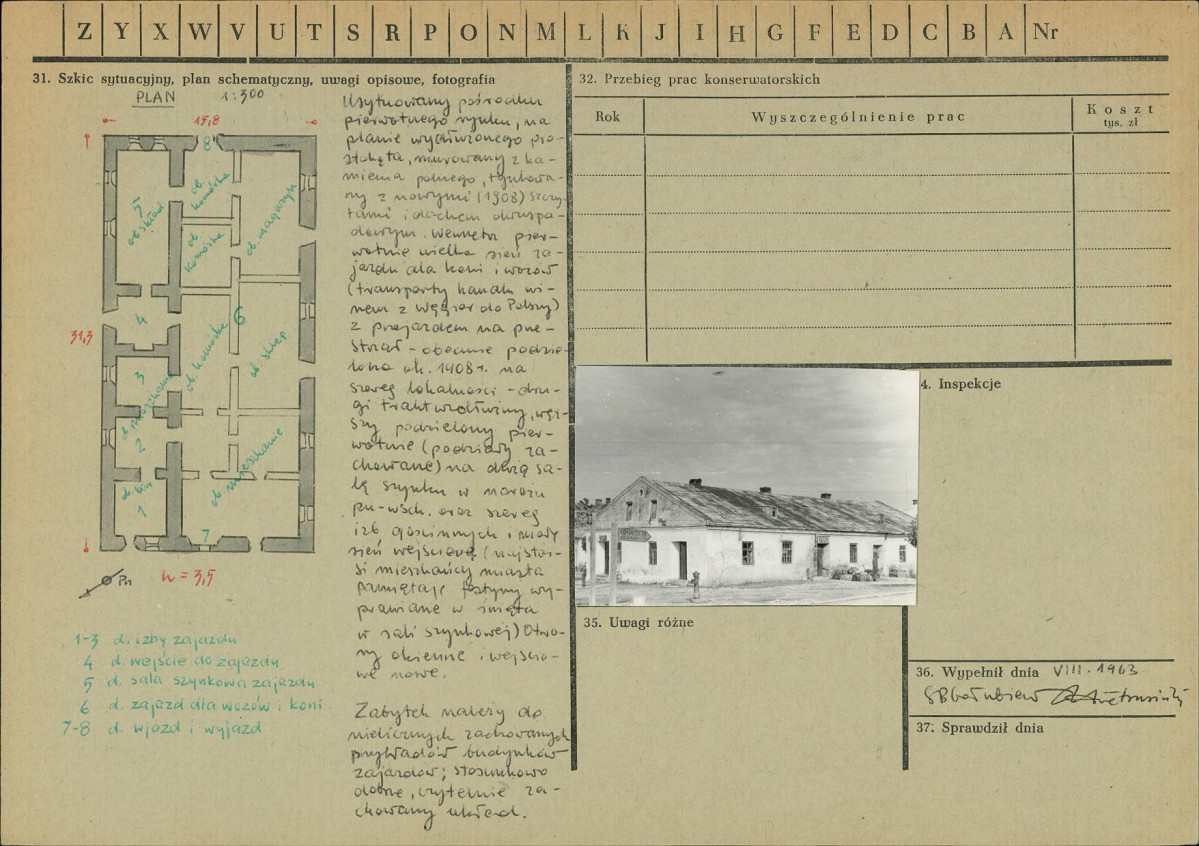 Z Y X W V U T S R P O N M L K J I H G F E D C B A Nr
31. Szkic sytuacyjny, plan schematyczny, uwagi opisowe, fotografia
PLAN 1:300
15,8
8
5
ob. skład
ob. komórka
ob. komórka
ob. magazyn
4
31,3
3
ob. mieszkanie
2
1
ob. komórka
6
ob. sklep
ob. mieszkanie
7
Pn
h = 3,5
1-3 d. izby zajazdu
4 d. wejście do zajazdu
5 d. sala szynkowa zajazdu
6 d. zajazd dla wozów i koni
7-8 d. wjazd i wyjazd
Usytuowany pośrodku
pierwotnego rynku, na
planie wydłużonego pro-
stokąta, murowany z ka-
mienia polnego, tynkowa-
ny z nowymi (1908) szczy-
tami i dachem dwuspa-
dowym. Wewnątrz pier-
wotnie wielka sień za-
jazdu dla koni i wozów
(transporty handlu wi-
nem z Węgier do Polski)
z przejazdem na prze-
strzał - obecnie podzie-
lona ok. 1908 r. na
szereg lokalności - dru-
gi trakt wzdłużny, węż-
szy podzielony pier-
wotnie (podziały za-
chowane) na dużą sa-
lę szynku w narożu
pn-wsch. oraz szereg
izb gościnnych i małą
sień wejściową (najstar-
si mieszkańcy miasta
pamiętają festyny wy-
prawiane w święta
w sali szynkowej) Otwo-
ry okienne i wejścio-
we nowe.
Zabytek należy do
nielicznych zachowanych
przykładów budynków
zajazdów; stosunkowo
dobrze, czytelnie za-
chowany układ.
32. Przebieg prac konserwatorskich
Rok
Wyszczególnienie prac
Koszt
tys. zł
4. Inspekcje
35. Uwagi różne
36. Wypełnił dnia VIII. 1963
37. Sprawdził dnia